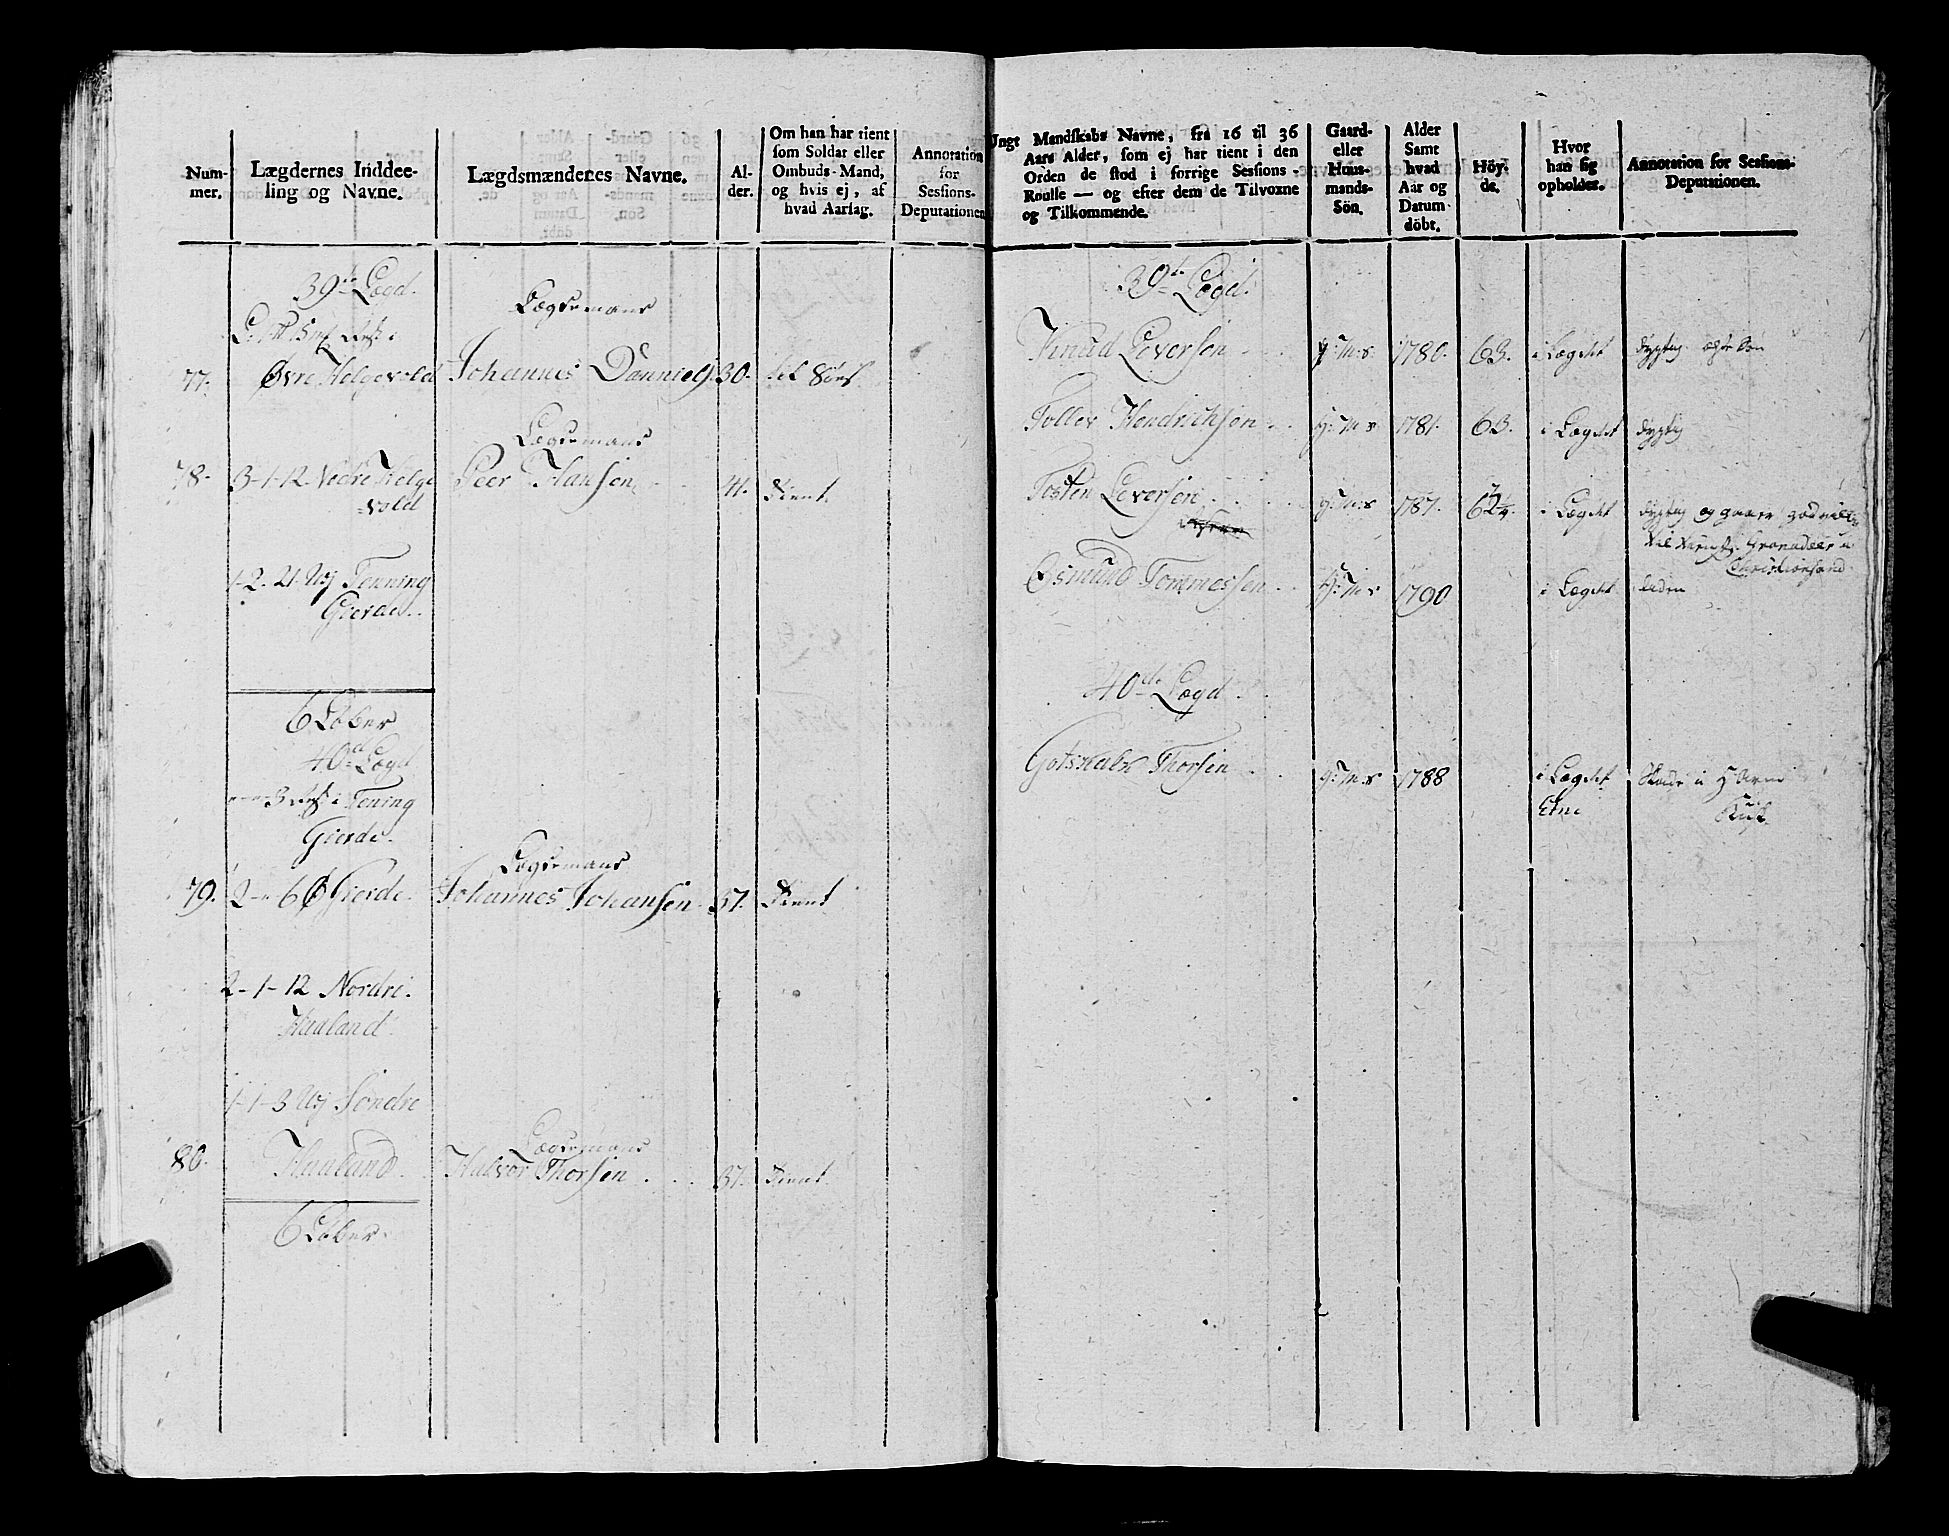 Num-
mer.
Lægdernes Inddee-
ling og Navne.
Lægdsmændenes Navne.
Al-
der.
Om han har tient
som Soldat eller
Ombuds-Mand,
og hvis ej, af
hvad Aarsag.
Annotation
for
Sessions-
Deputationen
39te Lægd.
Øvre Helgevold
77.
Lægdsmand
Johannes Danniels. 30.
78. 3-1-12 Nedre Helge
vold
Lægdsmand
Peer Hansen 41. tient
1-2-21 Tenning
Gierde.
6 Løber
40de Lægd
3 i Tening
Gierde.
Lægdsmand
79. 2-"-6 Gierde. Johannes Johansen 37. tient
2-1-12 Nordre
Haaland.
1-1-3 Söndre
Lægdsmand
80. Haaland. Halvor Thorsen 37. tient
6 Løber
Ungt Mandskabs Navne, fra 16 til 36
Aars Alder, som ej har tient i den
Orden de stod i forrige Sessions-
Roulle — og efter dem de Tilvoxne
og Tilkommende.
Gaard-
eller
Huus-
mands-
Sön.
Alder
Samt
hvad
Aar og
Datum
döbt.
Höy-
de.
Hvor
han sig
opholder.
Annotation for Sessions-
Deputationen.
39te Lægd.
Knud Eversen g:M:s 1780. 63. i Lægdet dygtig
Tollev Hendrichsen H:M:s 1781. 63. i Lægdet dygtig
Tosten Eversen g:M:s 1787. 62 1/4. i Lægdet dygtig og
Christiansand
Osmund Tommessen H:M:s 1790 i Lægdet liden
40de Lægd.
Gotskalk Thorsen g:M:s 1788 i Lægdet
Etne